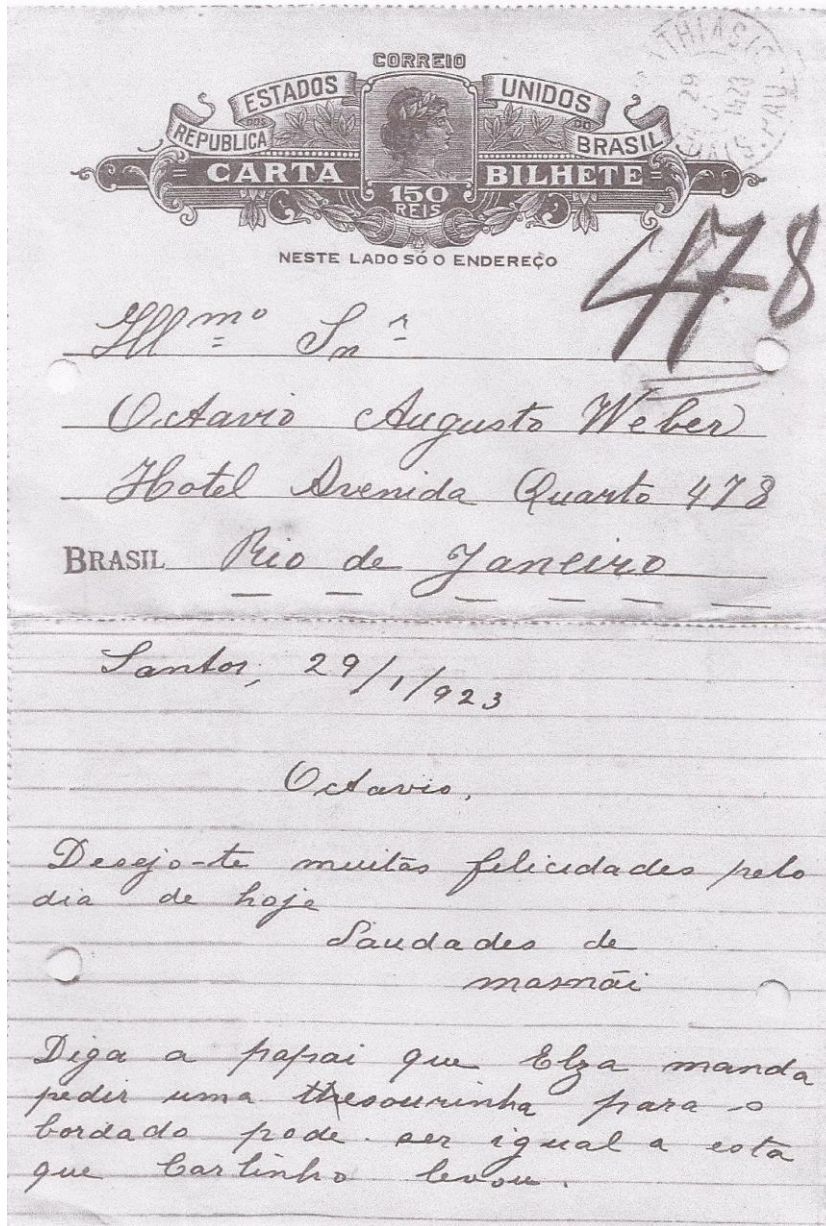 CORREIO
ESTADOS UNIDOS
REPUBLICA DOS DO BRASIL
CARTA BILHETE
150
REIS
NESTE LADO SÓ O ENDEREÇO
29
1923
478
Illmo Snr
Octavio Augusto Weber
Hotel Avenida Quarto 478
BRASIL Rio de Janeiro
Santos, 29/1/923
Octavio,
Desejo-te muitas felicidades pelo
dia de hoje
Saudades de
mamãi
Diga a papai que Elza manda
pedir uma thesourinha para o
bordado pode ser igual a esta
que Carlinho levou.